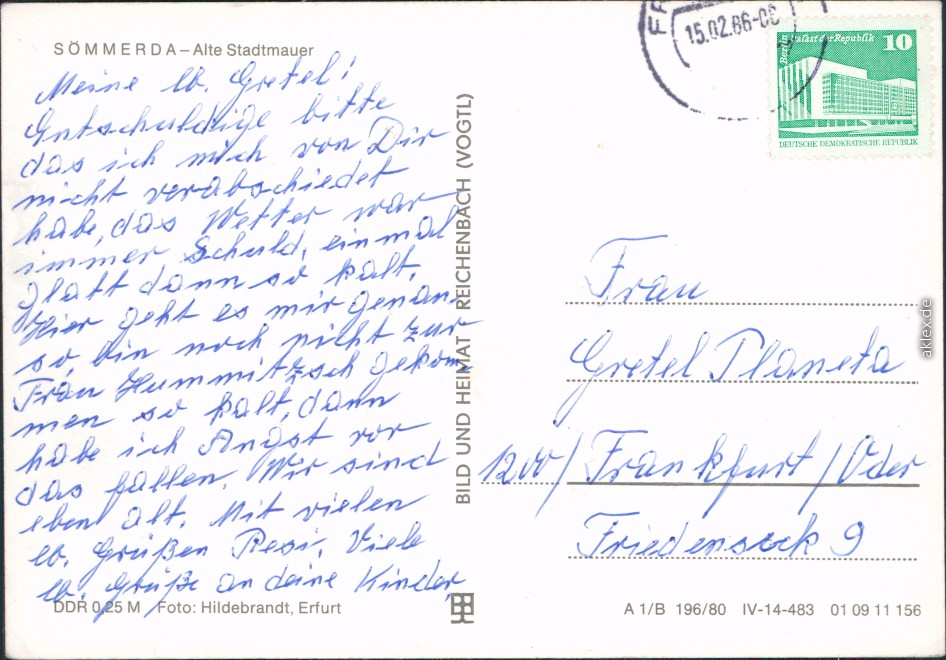 SÖMMERDA – Alte Stadtmauer
Meine lb. Gretel!
Entschuldige bitte
das ich mich von Dir
nicht verabschiedet
habe, das Wetter war
immer Schuld, einmal
glatt dann so kalt.
Hier geht es mir genau
so, bin noch nicht zur
Frau Hummitzsch gekom
men so kalt, dann
habe ich Angst vor
das fallen. Wir sind
eben alt. Mit vielen
lb. Grüßen Resi. Viele
lb. Grüße an deine Kinder,
DDR 0,25 M Foto: Hildebrandt, Erfurt
BILD UND HEIMAT REICHENBACH (VOGTL)
15.02.86
Berlin Palast der Republik 10
DEUTSCHE DEMOKRATISCHE REPUBLIK
Frau
Gretel Planeta
1200/Frankfurt/Oder
9
A 1/B 196/80 IV-14-483 01 09 11 156
aklex.de